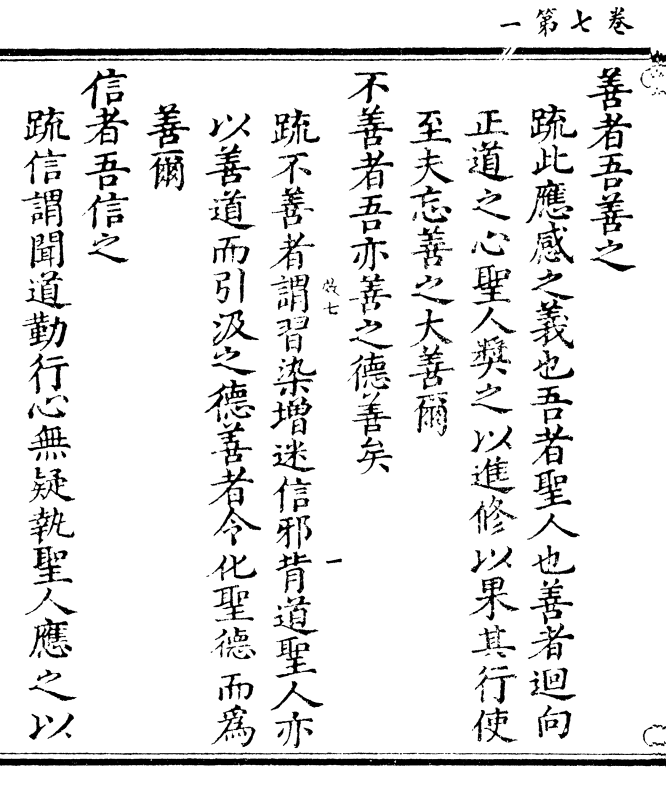 卷七第一
善者吾善之
䟽此應感之義也吾者聖人也善者迴向
正道之心聖人獎之以進修以果其行使
至夫忘善之大善爾
不善者吾亦善之德善矣
䟽不善者謂習染增迷信邪背道聖人亦
以善道而引汲之德善者令化聖德而爲
善爾
信者吾信之
䟽信謂聞道勤行心無疑執聖人應之以